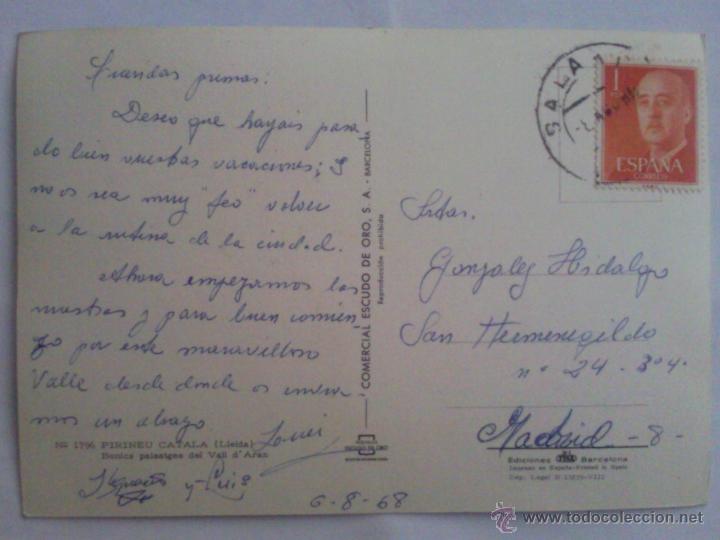 Queridas primas:
Deseo que hayais pasa
do bien vuestras vacaciones; y
no os sea muy "feo" volver
a la rutina de la ciudad.
Ahora empezamos las
nuestras y para buen comien
zo por este maravilloso
Valle desde donde os envia
mos un abrazo.
Nº 1796 PIRINEU CATALA (Lleida)
Bonics paisatges del Vall d'Aran
y Luis
6-8-68
COMERCIAL ESCUDO DE ORO, S. A. - BARCELONA
Reproducción prohibida
ESCUDO DE ORO
SALA
1
ESPAÑA
CORREOS
Srtas.
Gonzalez Hidalgo
San Hermenegildo
nº 24 - 3º4.
Madrid - 8 -
Ediciones Barcelona
Impreso en España-Printed in Spain
www.todocoleccion.net